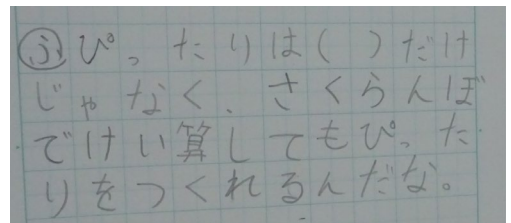 ふ ぴったりは( )だけ
じゃなく、さくらんぼ
でけい算してもぴった
りをつくれるんだな。